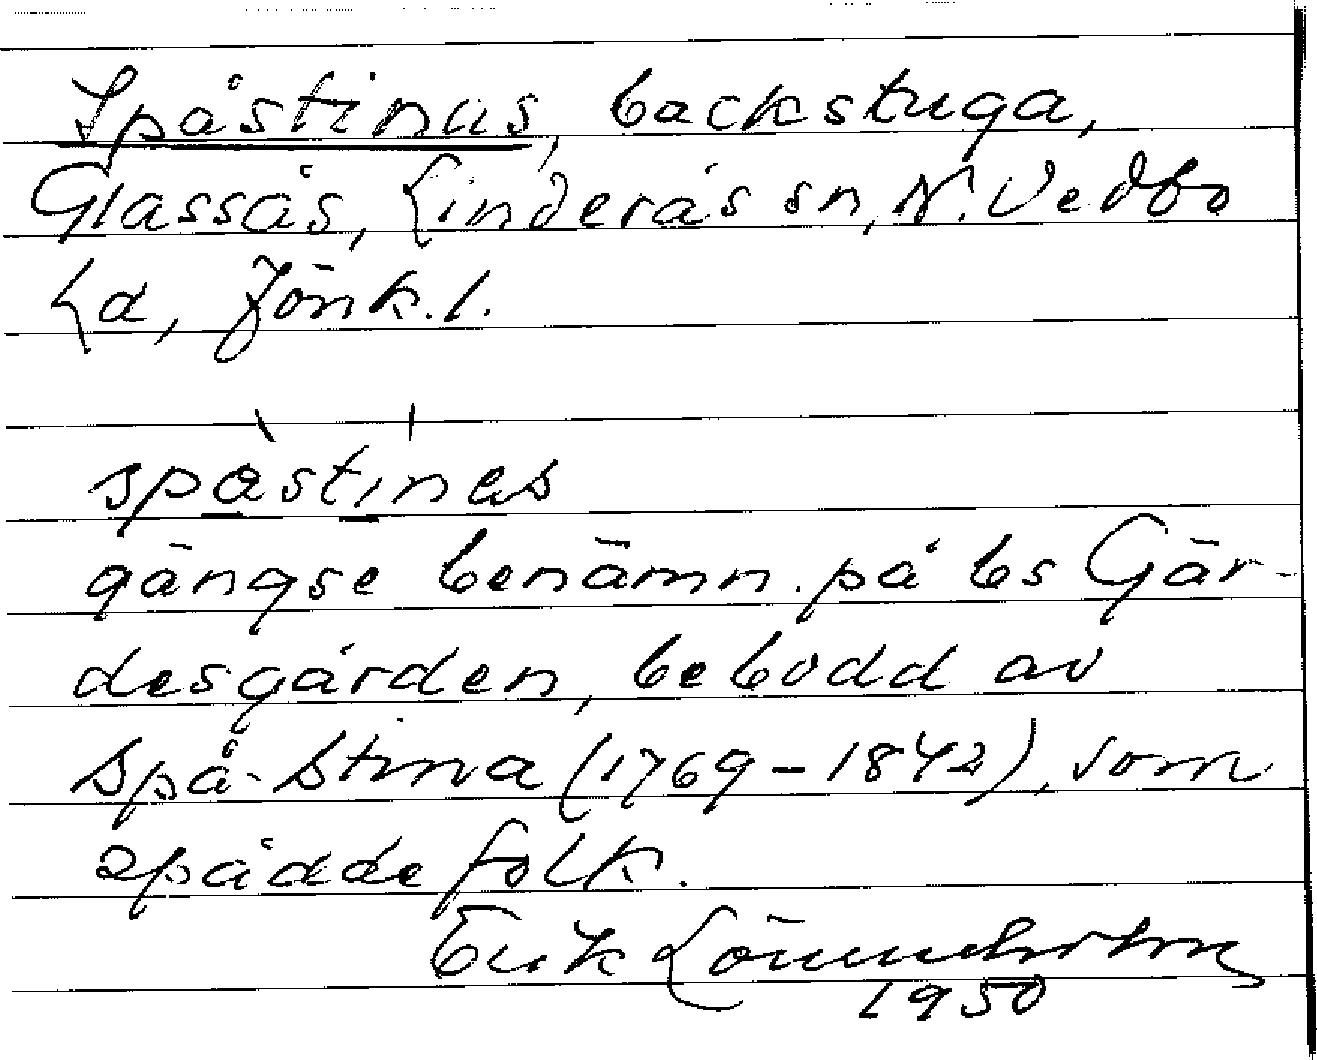 Spåstinas, backstuga,
Glassås, Linderås sn, N. Vedbo
Ld, Jönk. l.
spåstinas
gängse benämn. på bs Gär-
desgården, bebodd av
Spå-Stina (1769-1842), som
spådde folk.
Erik Lönnerholm
1950